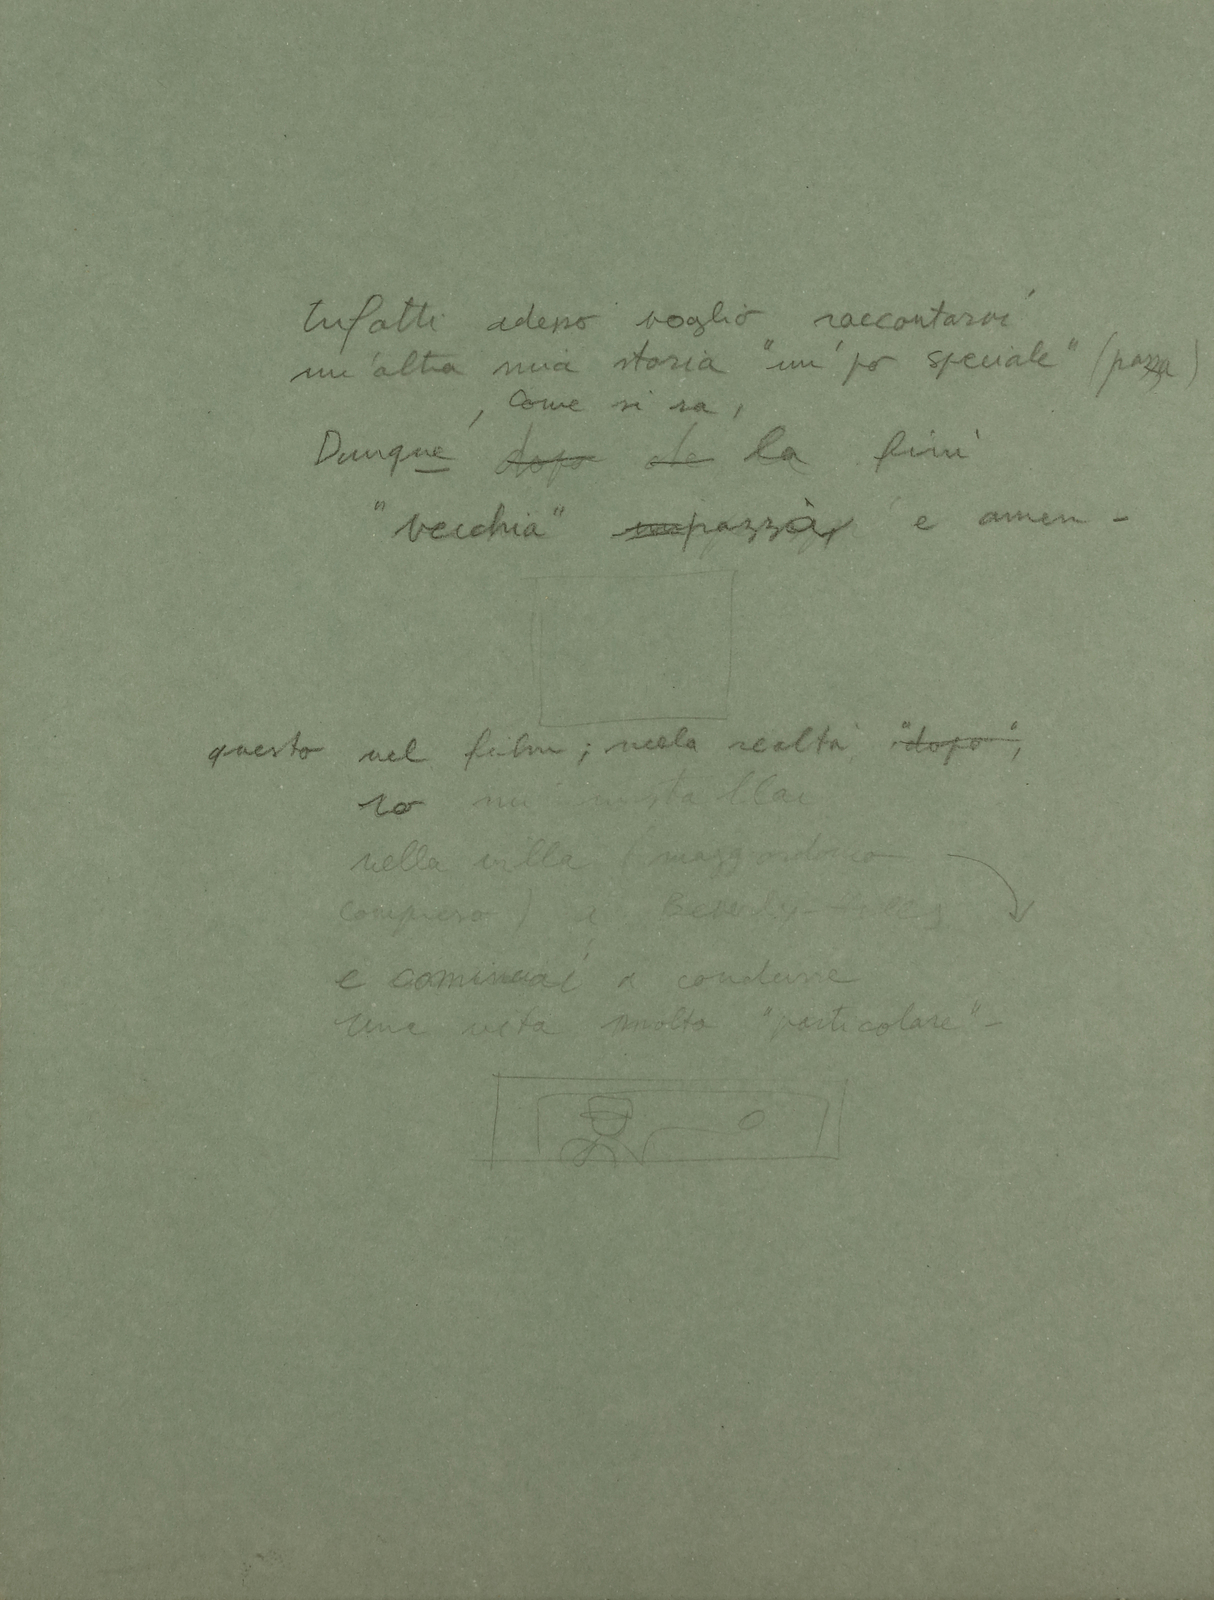 Infatti adesso voglio raccontarvi
un'altra mia storia "un' po speciale" (pazza)
, come si sa,
Dunque dopo de la finì
"vecchia" pazza, e amen -
questo nel film; nella realtà "dopo",
io mi installai
nella villa (maggiordomo
compreso) a Beverly-Hills
e cominciai a condurre
una vita molto "particolare" -